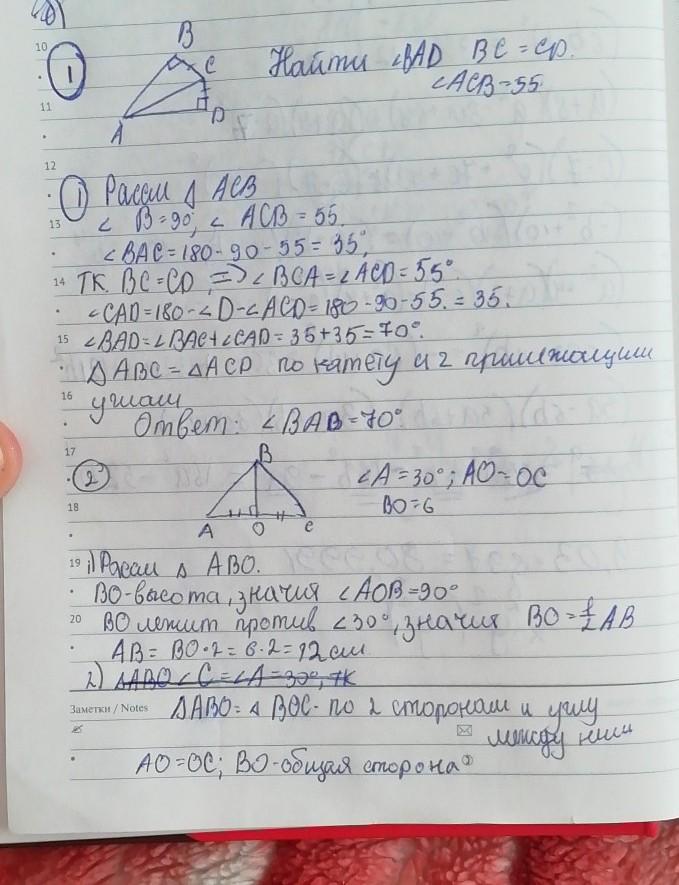 10
B
1
C
Найти ∠BAD BC = CD.
∠ACB = 55
11
D
A
12
1) Рассм Δ ACB
13
∠ B = 90°, ∠ ACB = 55.
∠BAC = 180 - 90 - 55 = 35°,
14 Т.К. BC = CD, => ∠BCA = ∠ACD = 55°
∠CAD = 180 - ∠D - ∠ACD = 180 - 90 - 55. = 35.
15 ∠BAD = ∠BAC + ∠CAD = 35 + 35 = 70°.
Δ ABC = Δ ACD по катету и 2 прилежащим
16 углам
Ответ: ∠BAB = 70°
17
2
B
∠A = 30°; AO = OC
BO = 6
18
A O C
19 1) Рассм Δ ABO.
BO-высота, значит ∠AOB = 90°
20 BO лежит против ∠30°, значит BO = 1/2 AB
AB = BO·2 = 6·2 = 12 см
2) ΔABO ∠C = ∠A = 30°, тк
Заметки / Notes ΔABO = Δ BOC - по 2 сторонам и углу
между ними
AO = OC; BO-общая сторона